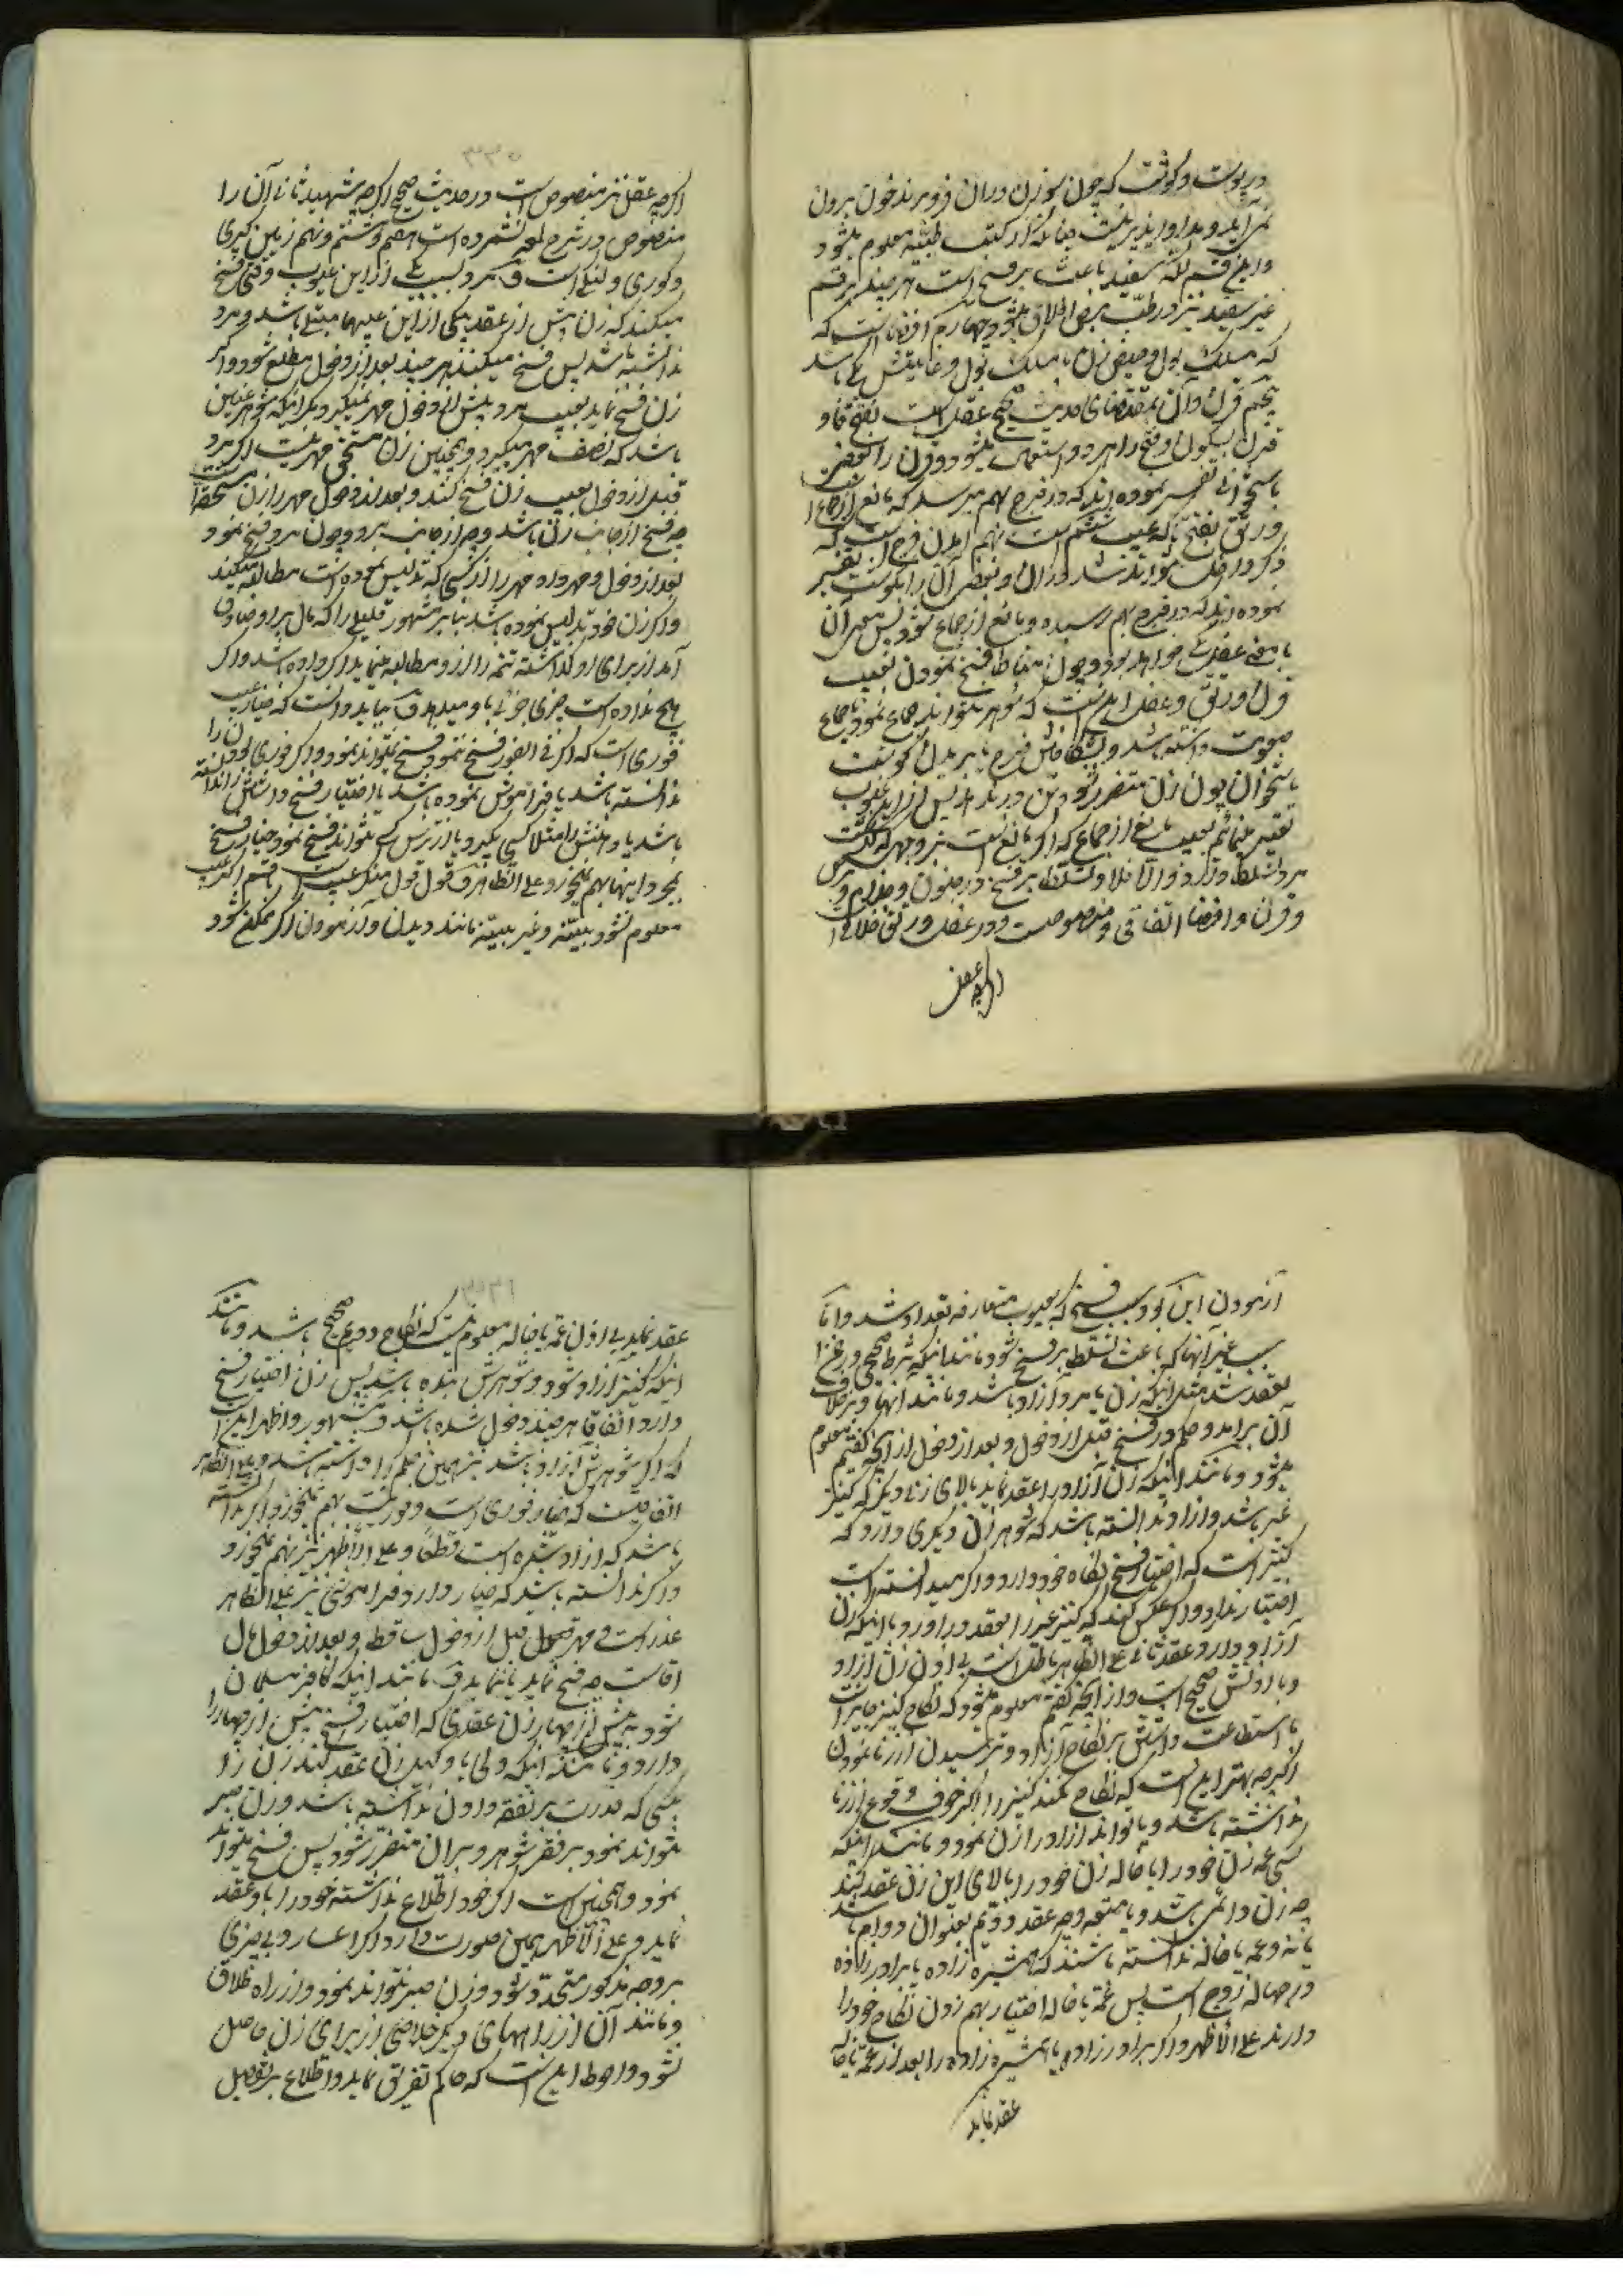 در پوست و گوشت که چون سوزن در آن فرو برند خون برون
نمی آید و مداوا پذیر نیست چنانکه از کتب طبیه معلوم میشود
و این قسم لکه سفید باعث بر فسخ است هر چند هر قسم
غیر سفید نیز در طب برص اطلاق میشود چهارم افضا است که
که مسلک بول و حیض زن با مسلک بول و غایطش یکی باشد
پنجم قرن و آن بمقتضای حدیث صحیح عفل است بفتح فا و
قرن بسکون و فتح را هر دو استعمال میشود و قرن را بعضی
باستخوانی تفسیر نموده اند که در فرج بهم میرسد که مانع از جماع
و رتق بفتح تا که عیب ششم است بهم آمدن فرج است که
ذکر داخل نتواند شد در آن و بعضی آن را بگوشت تفسیر
نموده اند که در فرج بهم رسیده و مانع از جماع شود پس
با معنی عفل یکی خواهد بود و چون مناط فسخ نمودن بعیب
قرن و رتق و عفل این است که شوهر نتواند جماع نمود یا جماع
صعوبت داشته باشد
باستخوان چون زن متضرر شود
تعبیر مینمائیم بعیب مانع از جماع که اگر مانع نیست بر وجهی که گذشت
مرد تسلط دارد و الا فلا و تسلط بر فسخ در جنون و جذام و برص
و قرن و افضا اتفاقی و منصوص است و در عفل و رتق خلافی
اگرچه عفل
اگرچه عفل نیز منصوص است در حدیث صحیح اگرچه شهید ثانی آن را
منصوص در شرح لمعه نشمرده است هفتم و هشتم و نهم زمین گیری
و کوری و لنگی است و مرد بسبب یکی از این عیوب وقتی فسخ
میکند که زن پیش از عقد بیکی از این عیبها مبتلی باشد و مرد
ندانسته باشد پس فسخ میکند هر چند بعد از دخول مطلع شود و اگر
زن فسخ نماید بعیب مرد پیش از دخول مهر نمیگیرد مگر اینکه شوهر عنین
باشد که نصف مهر میگیرد و همچنین زن مستحق مهر نیست اگر مرد
قبل از دخول بعیب زن فسخ کند و بعد از دخول مهر را زن مستحق است
چه فسخ از جانب زن باشد و چه از جانب مرد و چون مرد فسخ نمود
بعد از دخول و مهر داد مهر را از کسی که تدلیس نموده است مطالبه میکند
و اگر زن خود تدلیس نموده باشد بنا بر مشهور قلیلی را که مال بر او صادق
آمد از برای او گذاشته تتمه را از او مطالبه مینماید اگر داده باشد و اگر
هیچ نداده است چیزی جزئی باو میدهد و بباید دانست که خیار عیب
فوری است که اگر فی الفور فسخ ننمود فسخ نمیتواند نمود و اگر فوری بودن را
ندانسته باشد یا فراموش نموده باشد یا اختیار فسخ داشتن را ندانسته
باشد یا دهنش را مثلا کسی بگیرد یا از ترس کسی نتواند فسخ نمود خیار فسخ
بمجرد اینها بهم نمیخورد علی الظاهر و قول قول منکر عیب است با قسم اگر عیب
معلوم نشود ببینه و غیر بینه مانند دیدن و آزمودن اگر ممکن شود
آزمودن این بود سبب فسخ که بعیوب متعارفه تعداد شد و اما
سبب غیر آنها که باعث تسلط بر فسخ شود مانند اینکه شرط صحیح در ضمن
عقد شد مثل اینکه زن یا مرد آزاد باشد و مانند آنها و بر خلاف
آن برآمد و حکم در فسخ قبل از دخول و بعد از دخول از آنچه گفتیم معلوم
میشود و مانند اینکه زن آزاد را عقد نماید بالای زنی دیگر که کنیز
غیر باشد و آزاد ندانسته باشد که شوهر زن دیگری دارد که
کنیز است که اختیار فسخ نکاح خود دارد و اگر میدانسته است
اختیار ندارد و اگر عکس کند که کنیز غیر را بعقد در آورد با اینکه زن
آزاد دارد عقد ثانی علی الظاهر باطل است بی اذن زن آزاد
و با اذنش صحیح است و از آنچه گفتیم معلوم میشود که نکاح کنیز جایز است
با استطاعت داشتن بر نکاح آزاد و نترسیدن از زنا نمودن
اگرچه بهتر این است که نکاح نکند کنیز را اگر خوف وقوع از زنا
نداشته باشد و یا تواند آزاد را زن نمود و مانند اینکه
کسی عمه زن خود را یا خاله زن خود را بالای این زن عقد کند
چه زن دائمی باشد و یا متعه و چه عقد دوم بعنوان دوام باشد
یا نه و عمه یا خاله ندانسته باشند که همشیره زاده یا برادر زاده
در حباله زوج است پس عمه یا خاله اختیار بهم زدن نکاح خود را
دارند علی الاظهر و اگر برادر زاده یا همشیره زاده را بعد از عمه یا خاله
عقد نماید
عقد نماید بی اذن عمه یا خاله معلوم نیست که نکاح دویم صحیح باشد و مانند
اینکه کنیز آزاد شود و شوهرش بنده باشد پس زن اختیار فسخ
دارد اتفاقا هر چند دخول شده باشد و مشهور و اظهر این است
که اگر شوهرش آزاد باشد نیز همین حکم را داشته باشد و علی الظاهر
اتفاقیست که خیار فوری است و فوریت بهم میخورد اگر ندانسته
باشد که آزاد شده است قطعا و علی الاظهر نیز بهم میخورد
و اگر ندانسته باشد که خیار دارد و فراموشی نیز علی الظاهر
عذر است و مهر قبل از دخول ساقط و بعد از دخول مال
آقاست چه فسخ نماید یا ننماید و مانند اینکه کافر مسلمان
شود به بیش از چهار زن عقدی که اختیار فسخ بیش از چهار را
دارد و مانند اینکه ولی یا وکیل زن عقد کند زن را
بکسی که قدرت بر نفقه دادن نداشته باشد و زن صبر
نتواند نمود بر فقر شوهر و بر آن متضرر شود پس فسخ میتواند
نمود و همچنین است اگر خود اطلاع نداشته خود را باو عقد
نماید و علی الاظهر همین صورت دارد اگر اعسار و بی چیزی
بر وجه مذکور متجدد شود و زن صبر نتواند نمود و از راه طلاق
و مانند آن از راههای دیگر خلاصی از برای زن حاصل
نشود و احوط این است که حاکم تفریق نماید و اطلاع بر تفصیل